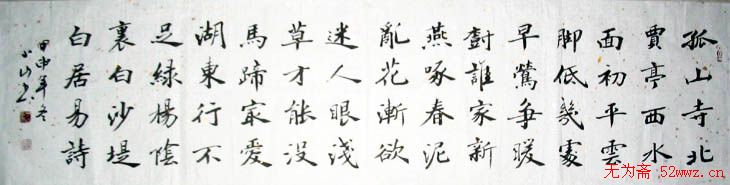 孤山寺北
賈亭西水
面初平雲
脚低幾處
早鶯争暖
樹誰家新
燕啄春泥
亂花漸欲
迷人眼淺
草才能没
馬蹄㝡愛
湖東行不
足綠楊陰
裏白沙堤
白居易詩
甲申年冬
小山
无为斋 52wwz.cn